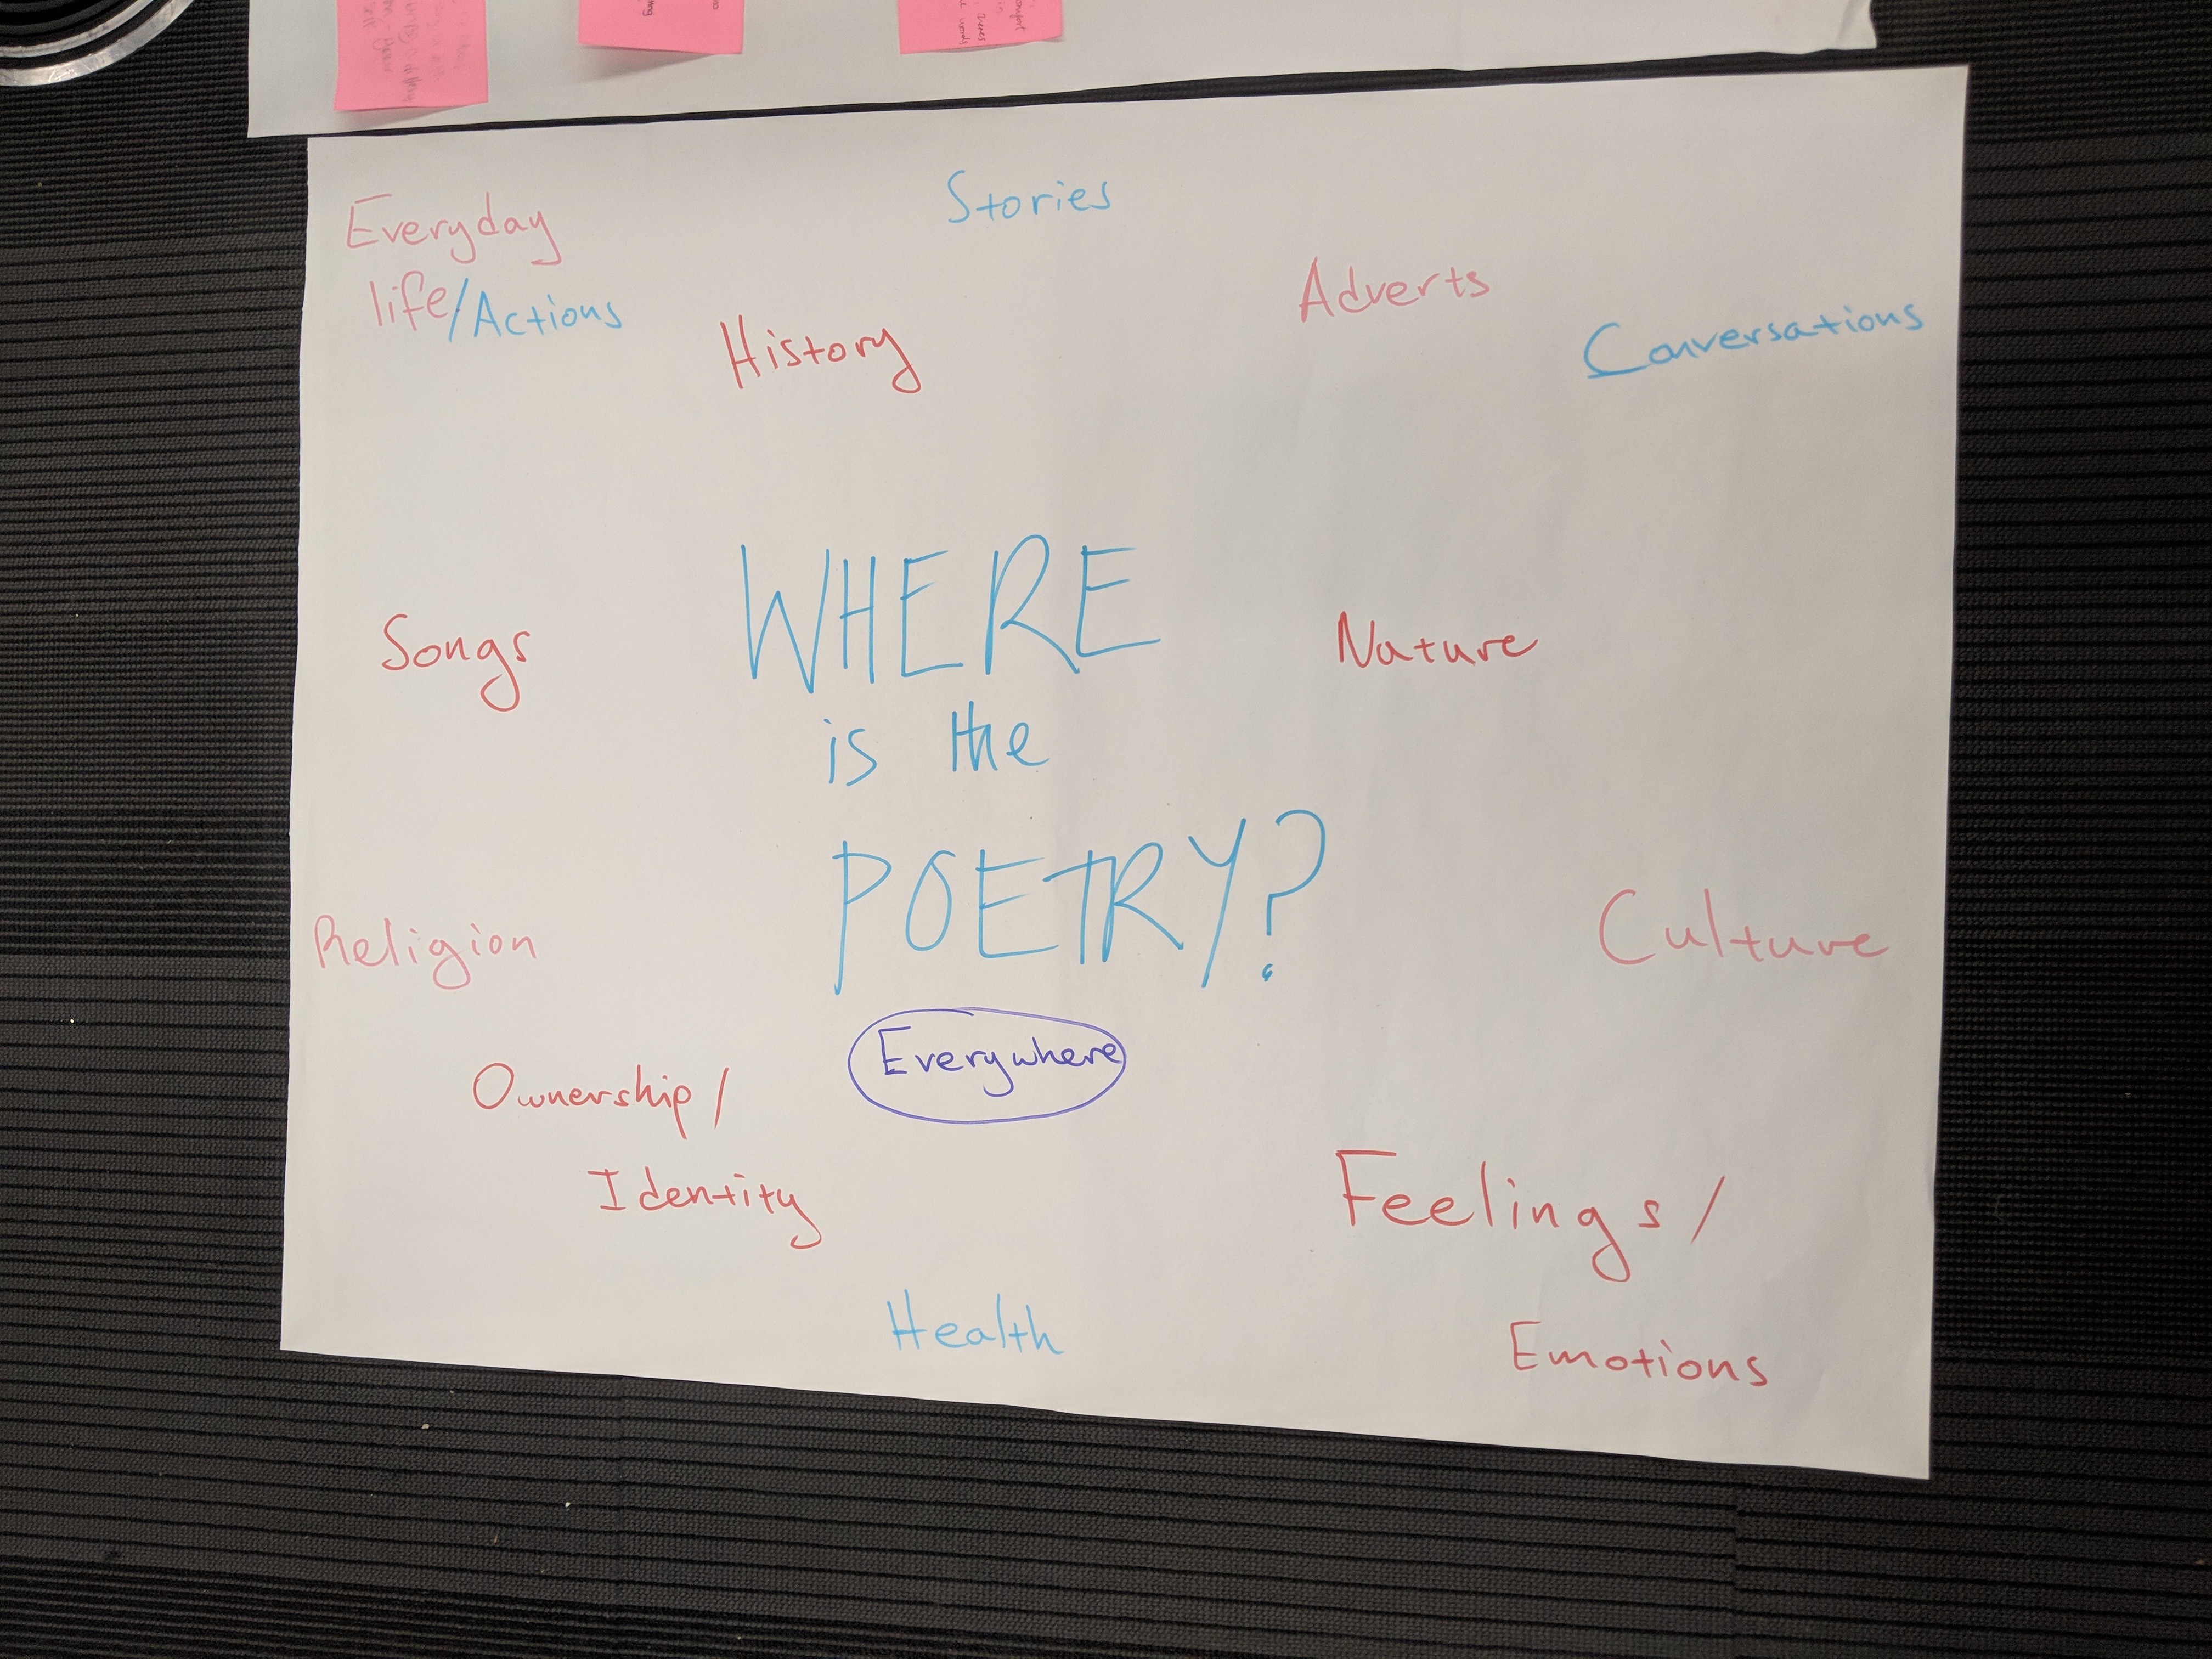 Stories
Everyday
life/Actions
Adverts
Conversations
History
WHERE
is the
POETRY?
Songs
Nature
Religion
Culture
Everywhere
Ownership/
Identity
Feelings/
Emotions
Health